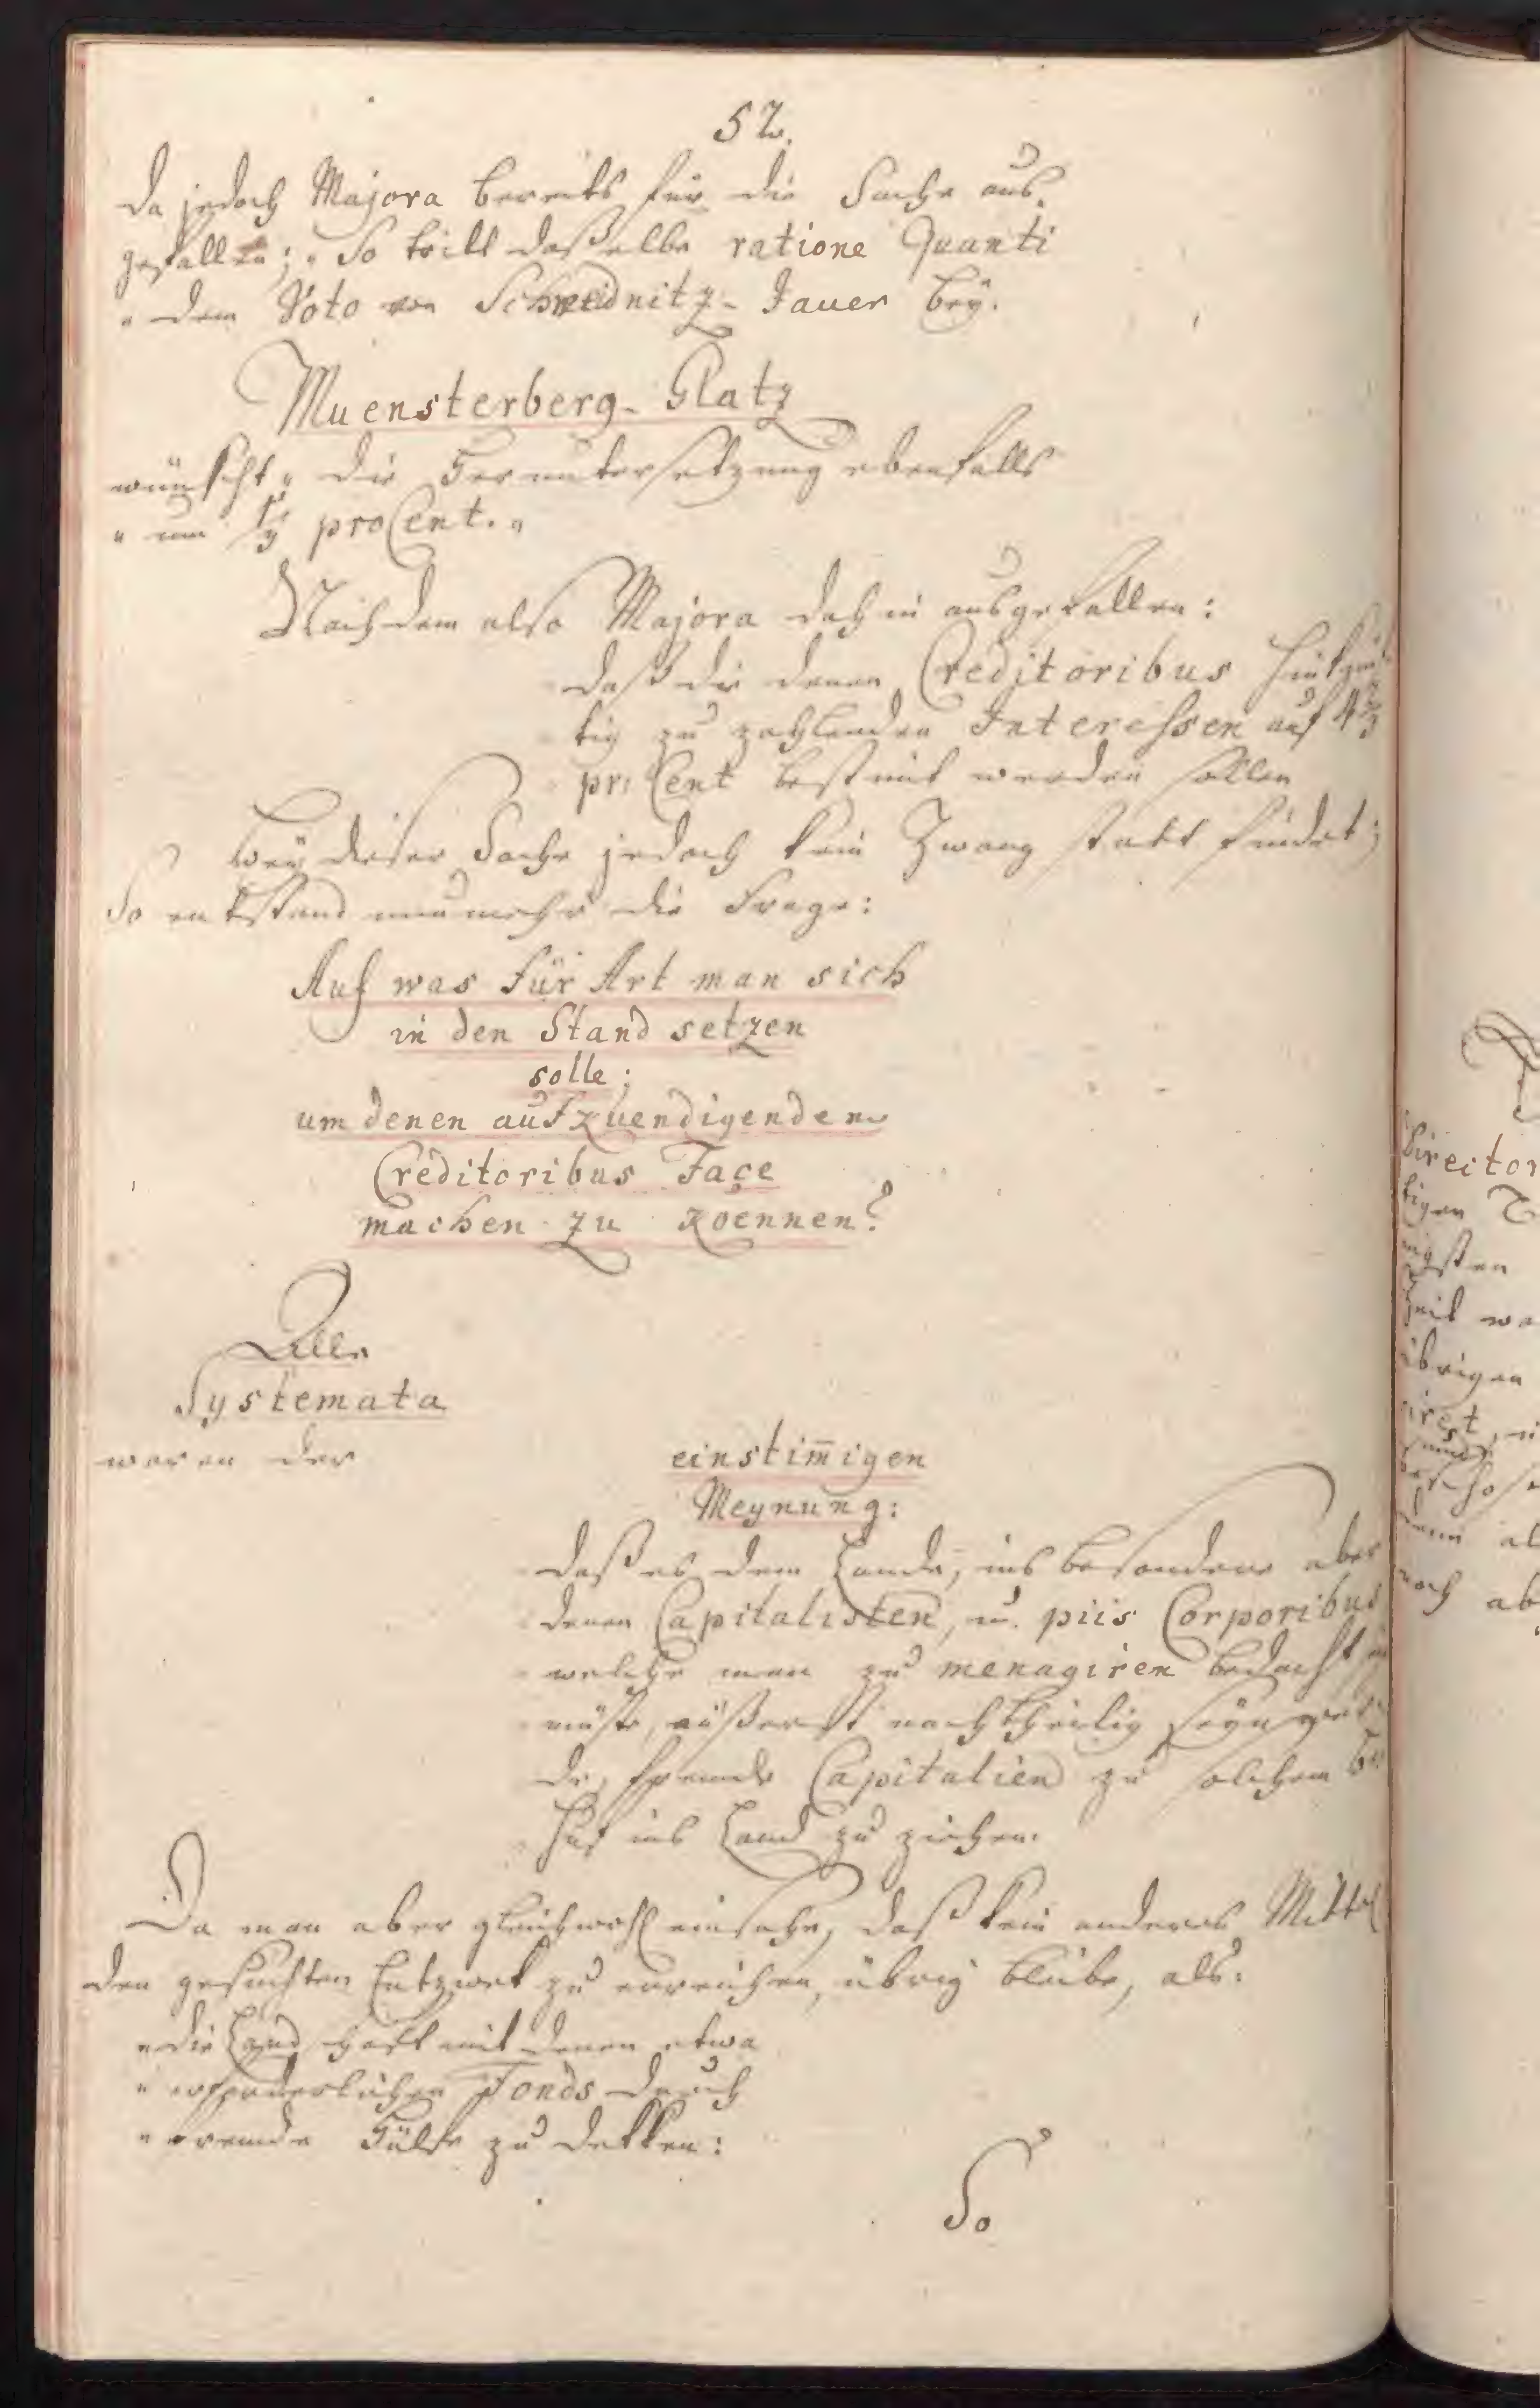 52.
Da jedoch Majora bereits für die Sache aus-
gefallen; „So tritt daßelbe ratione Quanti
„ dem Voto von Schweidnitz-Jauer bey.
Muensterberg-Glatz
wünscht „ die Heruntersetzung ebenfalls
„ um 1/3 proCent. „
Nachdem also Majora dahin ausgefallen:
daß die denen Creditoribus hinkünf-
tig zu zahlenden Interessen auf 4 2/3
proCent bestimt werden sollen
bey dieser Sache jedoch kein Zwang statt findet;
So entstand nunmehr die Frage:
Auf was für Art man sich
in den Stand setzen
solle;
um denen aufkuendigenden
Creditoribus Façe
machen zu koennen?
Alle
Systemata
waren der
einstim̄igen
Meynung:
daß es dem Lande, ins besondere aber
denen Capitalisten, u. piis Corporibus
welche man zu menagiren bedacht
müßte, äußerst nachtheilig seyn wür-
de, fremde Capitalien zu solchem Be-
huf ins Land zu ziehen.
Da man aber gleichwohl einsahe, daß kein anderes Mittel
den gesuchten Entzwek zu erreichen, übrig bliebe, als:
„ die Landschaft mit denen etwa
„ erforderlichen Fonds durch
„ fremde Hülfe zu dekken:
So
Director
tigen
übrigen